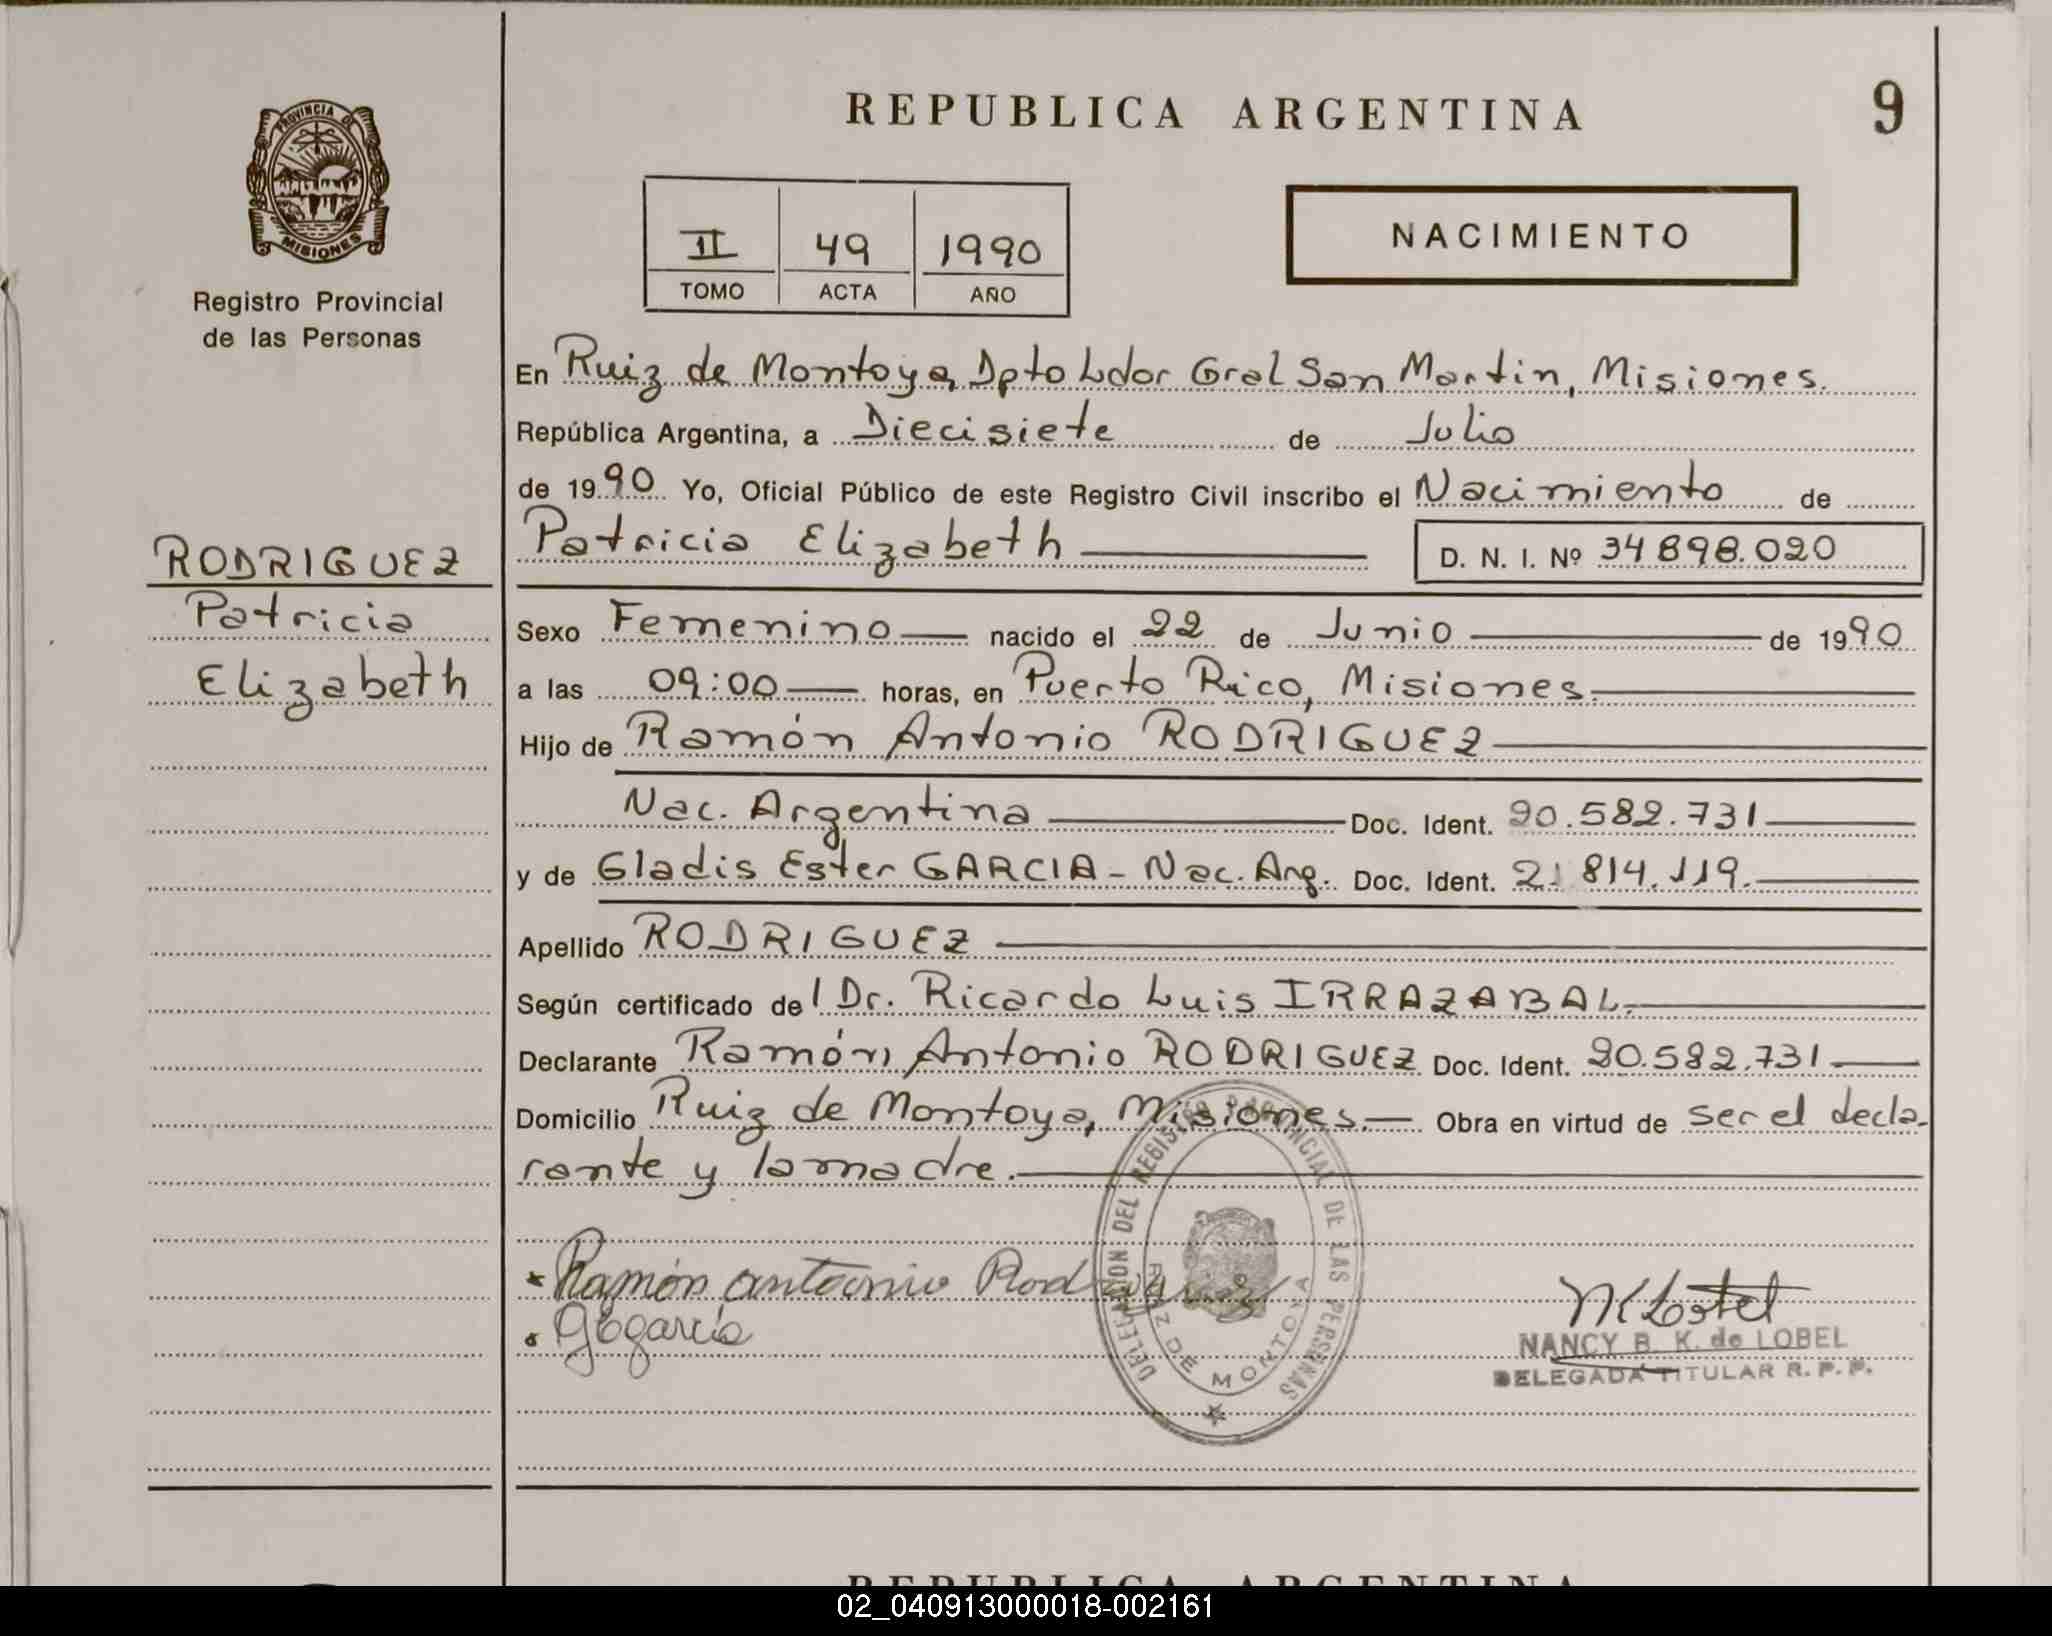 REPUBLICA ARGENTINA
9
PROVINCIA DE
MISIONES
Registro Provincial
de las Personas
II 49 1990
TOMO ACTA AÑO
NACIMIENTO
En Ruiz de Montoya, Dpto Ldor Gral San Martin, Misiones.
República Argentina, a Diecisiete de Julio
de 1990 Yo, Oficial Público de este Registro Civil inscribo el Nacimiento de
Patricia Elizabeth D. N. I. Nº 34898.020
RODRIGUEZ
Patricia
Elizabeth
Sexo Femenino nacido el 22 de Junio de 1990
a las 09:00 horas, en Puerto Rico, Misiones.
Hijo de Ramón Antonio RODRIGUEZ
Nac. Argentina Doc. Ident. 20.582.731
y de Gladis Ester GARCIA - Nac. Arg. Doc. Ident. 21.814.119.
Apellido RODRIGUEZ
Según certificado del Dr. Ricardo Luis IRRAZABAL.
Declarante Ramón Antonio RODRIGUEZ Doc. Ident. 20.582.731
Domicilio Ruiz de Montoya, Misiones. Obra en virtud de ser el decla-
rante y la madre.
Ramón antonio Rodriguez
DELEGACION DEL REGISTRO PROVINCIAL DE LAS PERSONAS
RUIZ DE MONTOYA
NANCY B. K. de LOBEL
DELEGADA TITULAR R. P. P.
REPUBLICA ARGENTINA
02_040913000018-002161